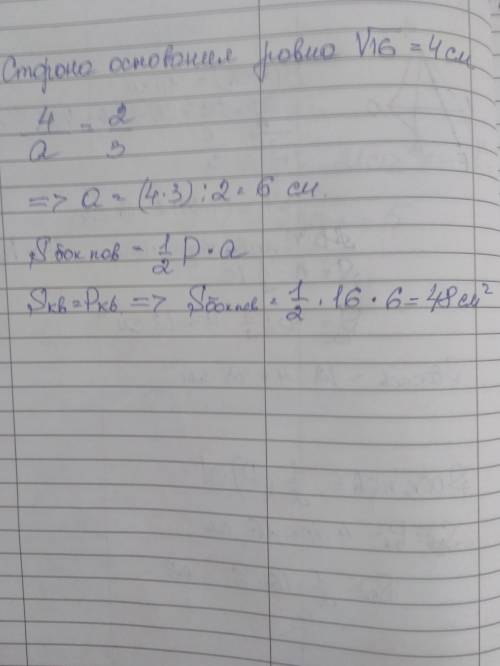 Сторона основания равна √16 = 4 см
4/a = 2/3
=> a = (4·3):2 = 6 см.
Sбок пов = 1/2 P·a
Sкв = Pкв => Sбок пов = 1/2 · 16 · 6 = 48 см²